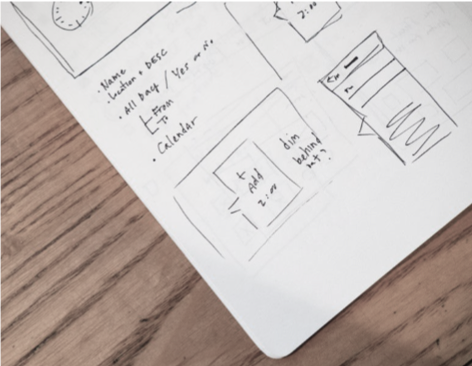 2:00
· Name
· Location + DESC
· All Day / Yes or No
From
To
· Calendar
+
Add
2:00
dim
behind